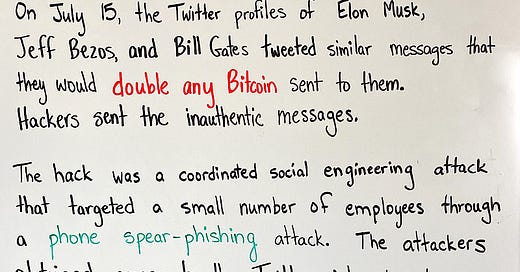 On July 15, the Twitter profiles of Elon Musk,
Jeff Bezos, and Bill Gates tweeted similar messages that
they would double any Bitcoin sent to them.
Hackers sent the inauthentic messages.
The hack was a coordinated social engineering attack
that targeted a small number of employees through
a phone spear-phishing attack. The attackers